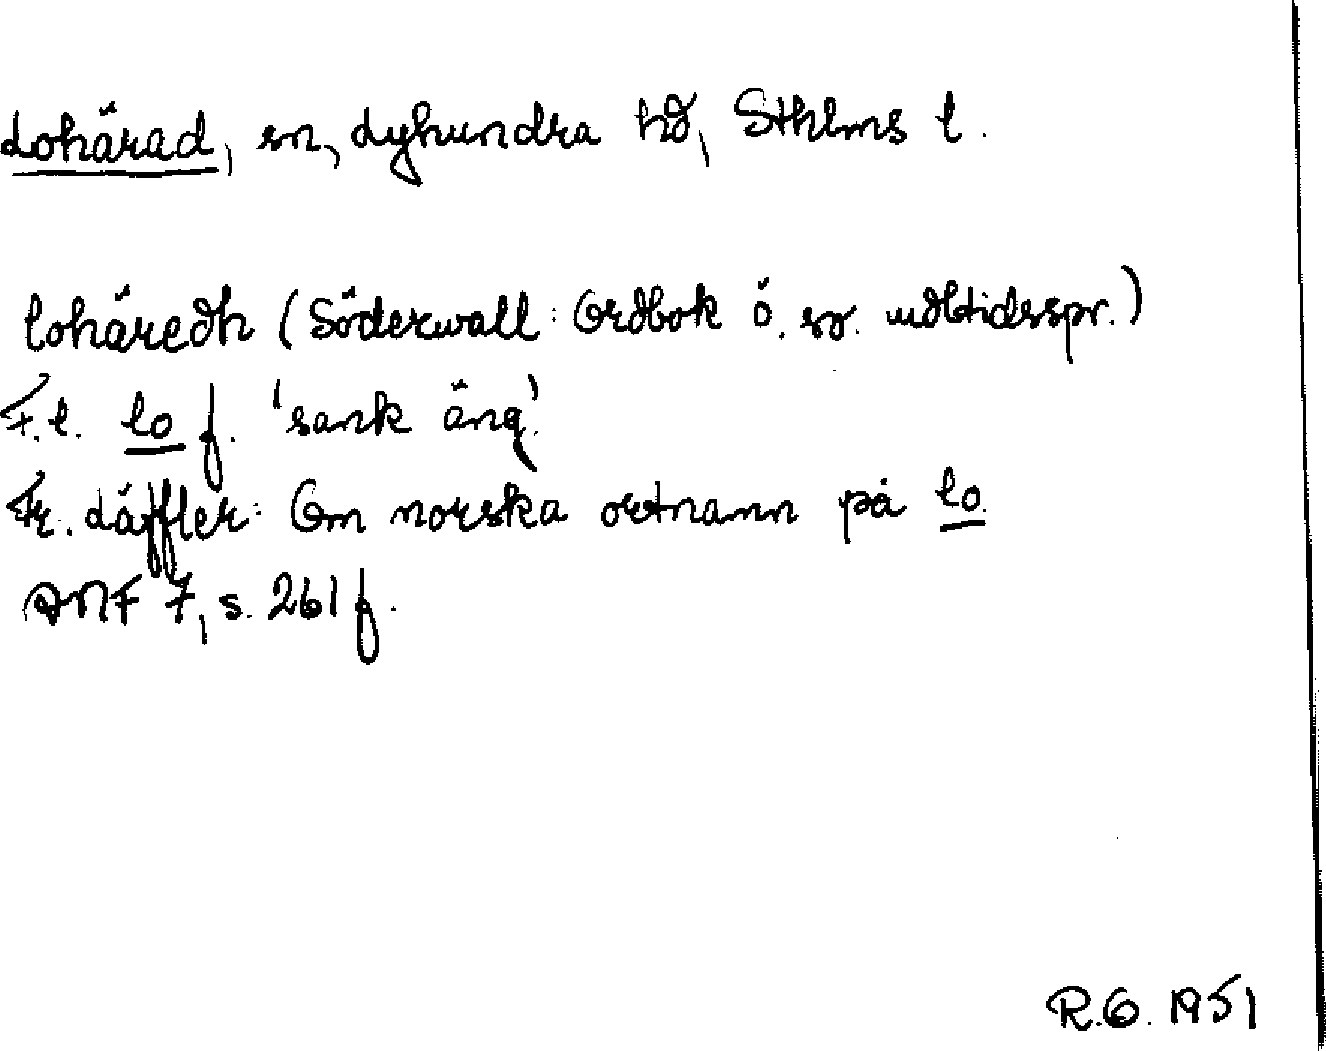 Lohärad, sn, Lyhundra hd, Sthlms l.
lohäredh (Söderwall: Ordbok ö. sv. mdltidsspr.)
F.l. lo f. 'sank äng'.
Fr. Läffler: Om norska ortnamn på lo.
ANF 7, s. 261 f.
R.O. 1951